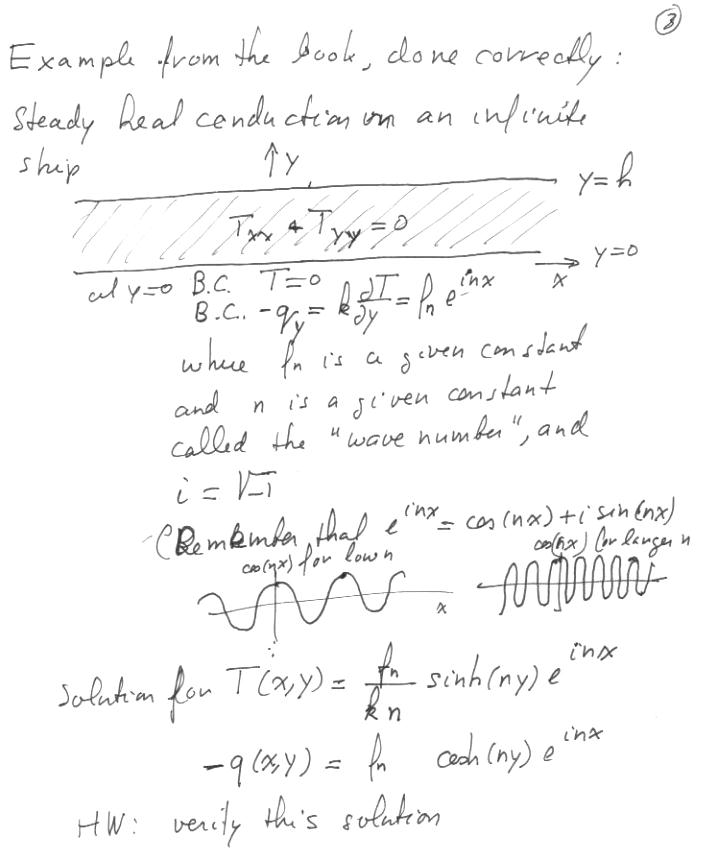 3
Example from the book, done correctly:
Steady heat conduction in an infinite
strip
↑y
y=h
Txx + Tyy = 0
y=0
x
at y=0 B.C. T=0
B.C. -q_y = k ∂T/∂y = f_n e^{inx}
where f_n is a given constant
and n is a given constant
called the "wave number", and
i = √-1
(Remember that e^{inx} = cos(nx) + i sin(nx)
cos(nx) for low n
cos(nx) for larger n
x
Solution for T(x,y) = f_n/(kn) sinh(ny) e^{inx}
-q(x,y) = f_n cosh(ny) e^{inx}
HW: verify this solution